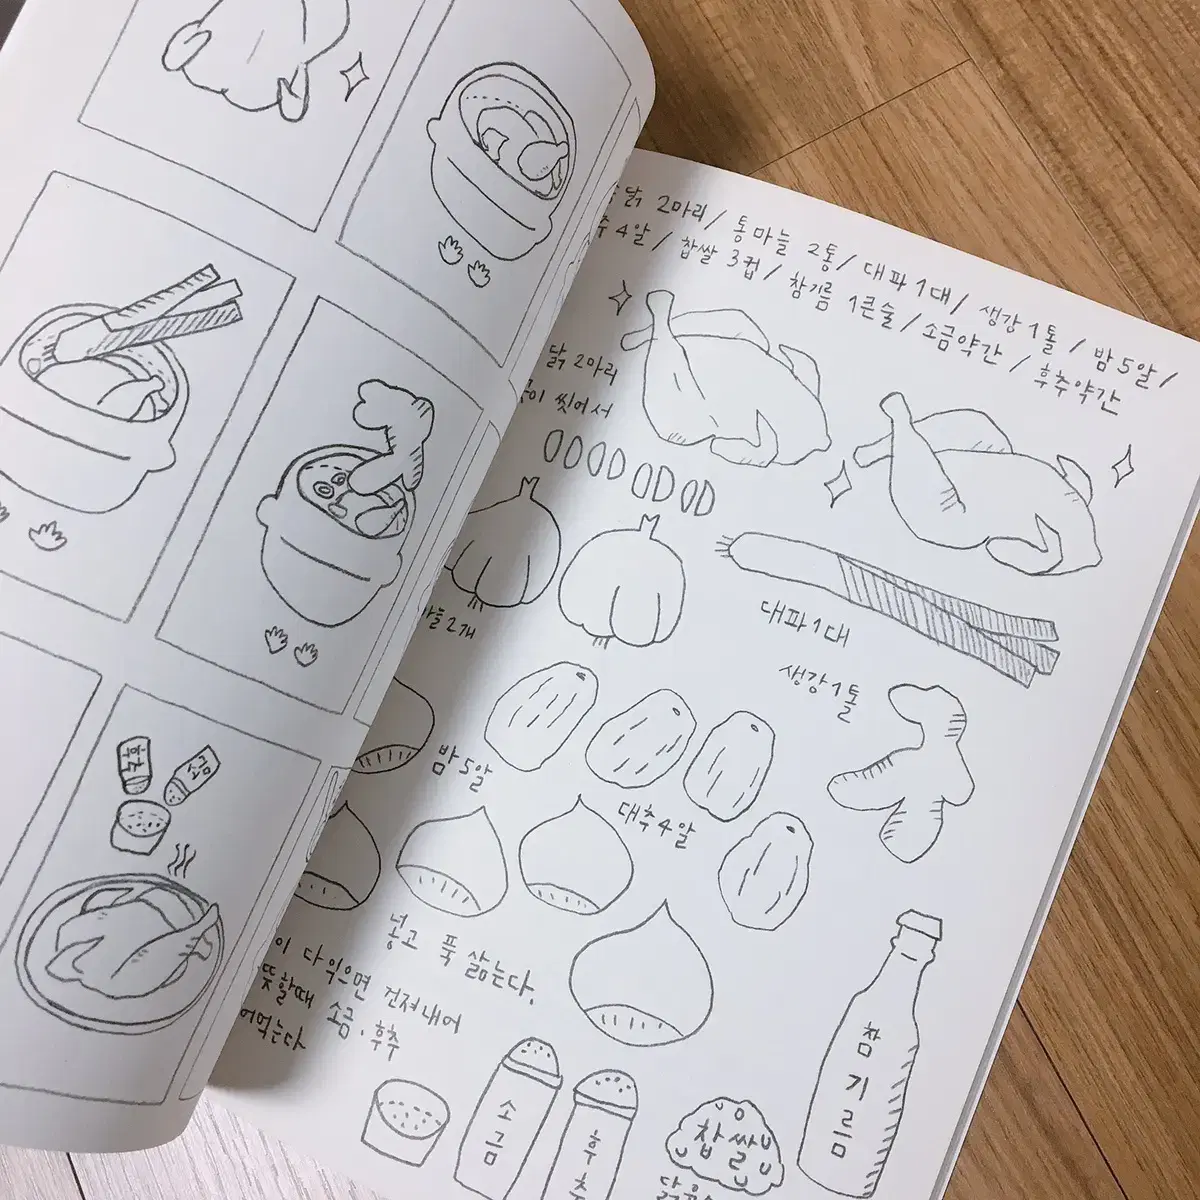 닭 2마리 / 통마늘 2통 / 대파 1대 / 생강 1톨 / 밤 5알 /
4알 / 찹쌀 3컵 / 참기름 1큰술 / 소금약간 / 후추약간
닭 2마리
씻어서
2개
대파 1대
생강 1톨
밤 5알
대추 4알
넣고 푹 삶는다.
이 다익으면 건져내어
뜻할때 소금, 후추
어먹는다
참기름
소금
후추
찹쌀
후추
소금